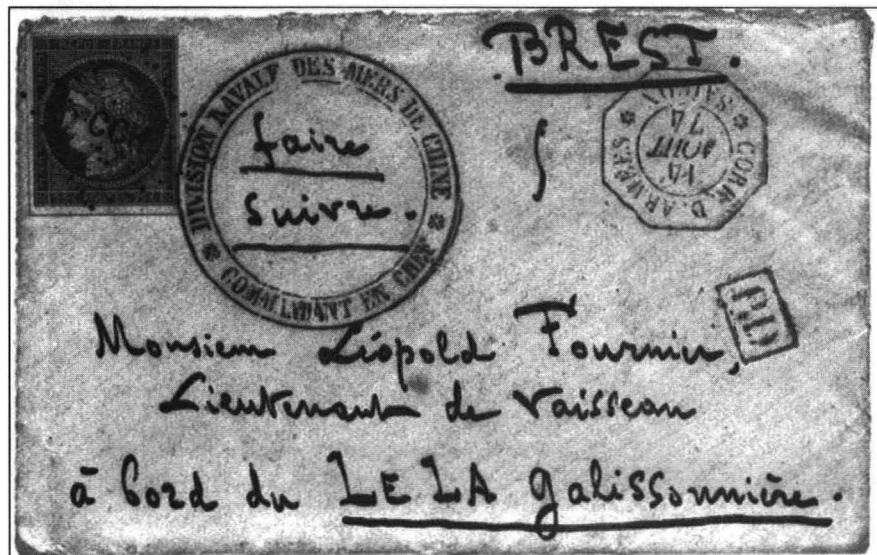 BREST.
REPUB. FRANC.
DIVISION NAVALE DES MERS DE CHINE
* COMMANDANT EN CHEF *
faire
suivre.
CORR. D. ARMÉES
* SAÏGON *
14
AOUT
74
PD
Monsieur Léopold Fournier,
Lieutenant de vaisseau
à bord du LE LA galissonnière.